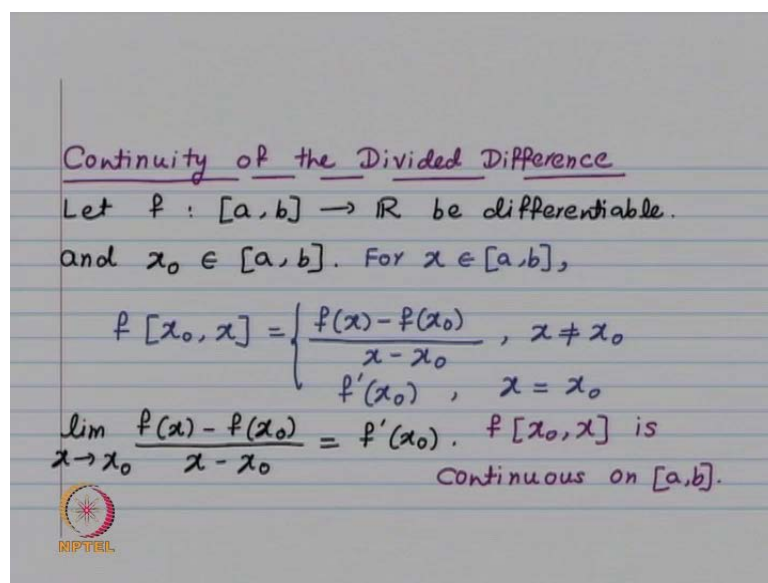 Continuity of the Divided Difference
Let f : [a,b] → ℝ be differentiable.
and x₀ ∈ [a,b]. For x ∈ [a,b],
f [x₀, x] = { (f(x) − f(x₀)) / (x − x₀) , x ≠ x₀
f'(x₀) , x = x₀
lim x→x₀ (f(x) − f(x₀)) / (x − x₀) = f'(x₀). f [x₀, x] is
continuous on [a,b].
NPTEL